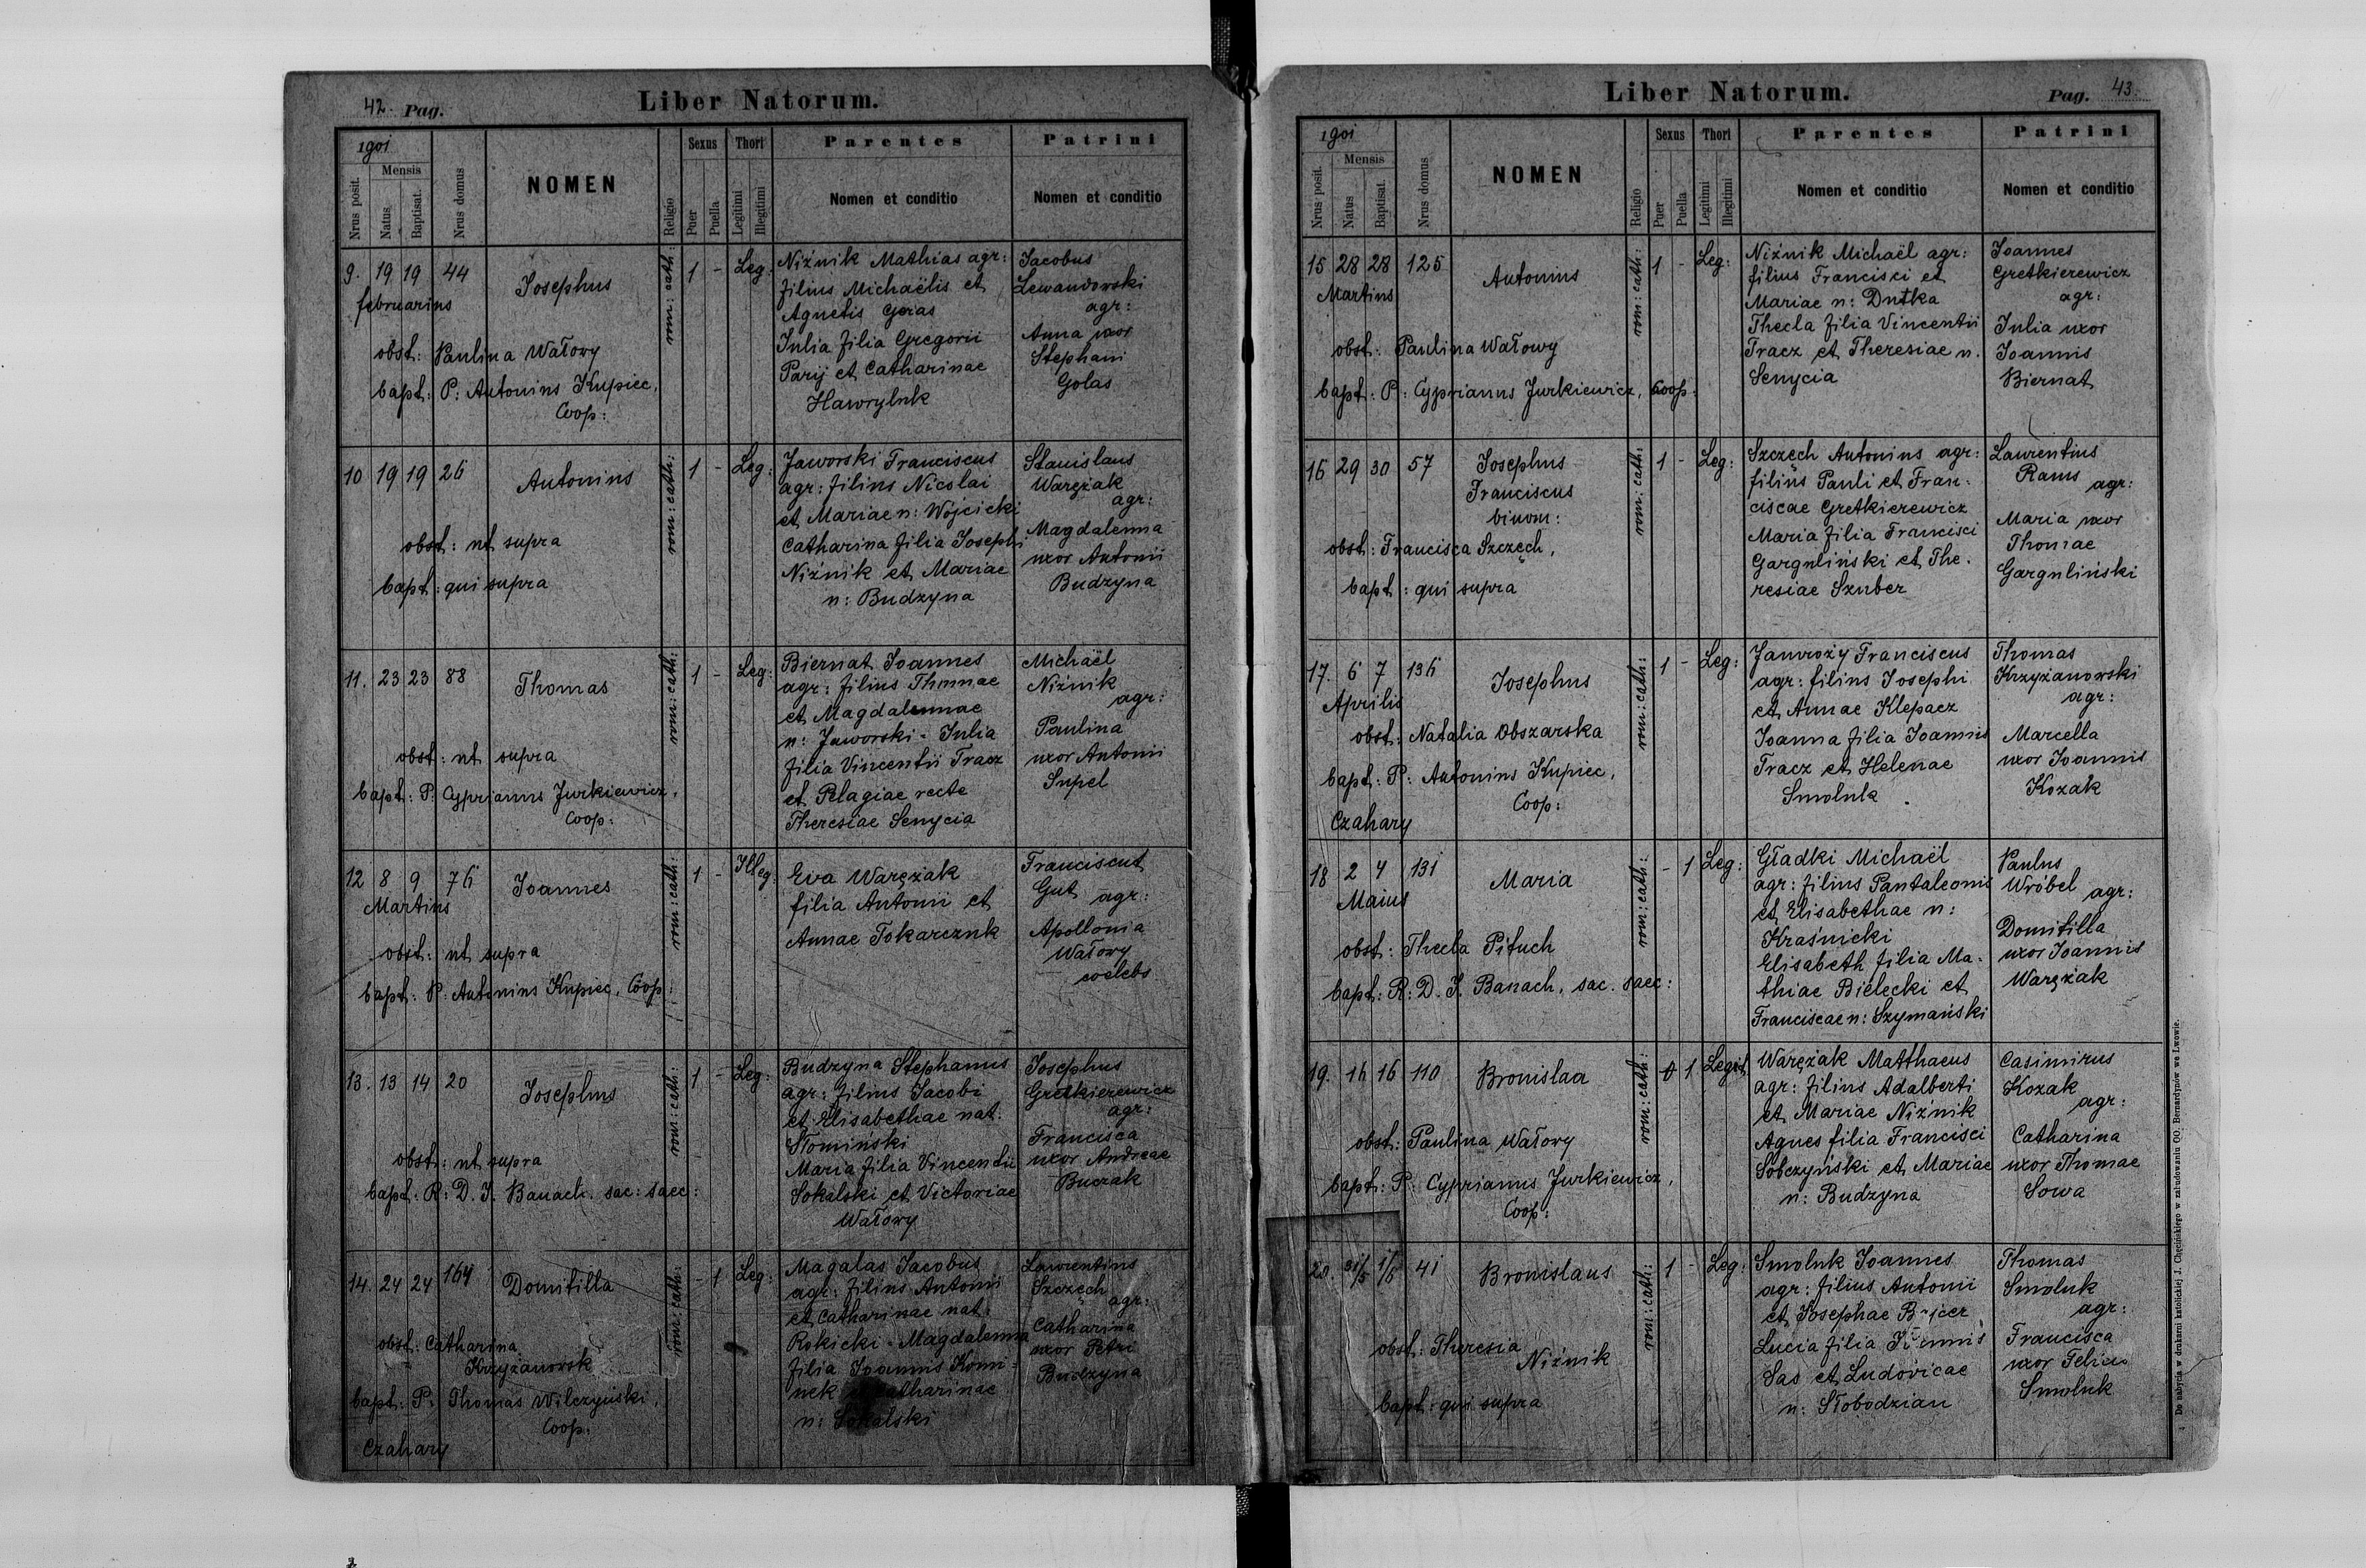 42. Pag.
Liber Natorum.
1901
Nrus posit.
Mensis
Natus
Baptisat.
Nrus domus
NOMEN
Religio
Sexus
Puer
Puella
Thori
Legitimi
Illegitimi
Parentes
Nomen et conditio
Patrini
Nomen et conditio
9. 19 19 44
februarius
Josephus
obst: Paulina Watowy
bapt: P: Antonius Kupiec,
Coop:
rom: cath:
1 - Leg:
Niźnik Mathias agr:
filius Michaëlis et
Agnetis Goras
Julia filia Gregorii
Paryj et Catharinae
Hawryluk
Jacobus
Lewandowski
agr:
Anna uxor
Stephani
Golas
10 19 19 26
Antonius
obst: ut supra
bapt: qui supra
rom: cath:
1 - Leg:
Jaworski Franciscus
agr: filius Nicolai
et Mariae n: Wojcicki
Catharina filia Josephi
Niźnik et Mariae
n: Budzyna
Stanislaus
Waręzak
agr:
Magdalenna
uxor Antonii
Budzyna
11. 23 23 88
Thomas
obst: ut supra
bapt: P: Cyprianus Jurkiewicz,
Coop:
rom: cath:
1 - Leg:
Biernat Joannes
agr: filius Thomae
et Magdalennae
n: Jaworski - Julia
filia Vincentii Tracz
et Pelagiae recte
Theresiae Senycia
Michaël
Niźnik
agr:
Paulina
uxor Antonii
Supel
12 8 9 76
Martius
Joannes
obst: ut supra
bapt: P: Antonius Kupiec, Coop:
rom: cath:
1 - Illeg:
Eva Waręzak
filia Antonii et
Annae Tokarczuk
Gut agr:
Apollonia
Watowy
coelebs
13. 13 14 20
Josephus
obst: ut supra
bapt: R: D. J. Banach. sac: saec:
rom: cath:
1 - Leg:
Budzyna Stephanus
agr: filius Jacobi
et Elisabethae nat:
Stomiński
Maria filia Vincentii
Sokalski et Victoriae
Watowy
Josephus
Gretkierewicz
agr:
Francisca
uxor Andreae
Buczak
14. 24 24 164
Domitilla
obst: Catharina
Krzyżanowsk
bapt: P: Thomas Wilczyński,
Coop:
Czahary
rom: cath:
- 1 Leg:
Magalas Jacobus
agr: filius Antonii
et Catharinae nat:
Rokicki - Magdalenna
filia Joannis Komi-
nek Catharinae
n: Sokalski
Laurentius
Szczęch
agr:
Catharina
uxor Petri
Budzyna
Liber Natorum.
Pag. 43.
1901
Nrus posit.
Mensis
Natus
Baptisat.
Nrus domus
NOMEN
Religio
Sexus
Puer
Puella
Thori
Legitimi
Illegitimi
Parentes
Nomen et conditio
Patrini
Nomen et conditio
15 28 28 125
Martius
Antonius
obst: Paulina Watowy
bapt: P: Cyprianus Jurkiewicz, Coop:
rom: cath:
1 - Leg:
Niźnik Michaël agr:
filius Francisci et
Mariae n: Dutka
Thecla filia Vincentii
Tracz et Theresiae n.
Senycia
Joannes
Gretkierewicz
agr:
Julia uxor
Joannis
Biernat
16 29 30 57
Josephus
Franciscus
binom:
obst: Francisca Szczęch,
bapt: qui supra
rom: cath:
1 - Leg:
Szczęch Antonius agr:
filius Pauli et Fran-
ciscae Gretkierewicz
Maria filia Francisci
Garguliński et The-
resiae Szuber
Laurentius
Rams
agr:
Maria uxor
Thomae
Garguliński
17. 6 7 136
Aprilis
Josephus
obst: Natalia Obszarska
bapt: P: Antonius Kupiec,
Coop:
Czahary
rom: cath:
1 - Leg:
Jamroży Franciscus
agr: filius Josephi
et Annae Klepacz
Joanna filia Joannis
Tracz et Helenae
Smoluk
Thomas
Krzyżanowski
agr:
Marcella
uxor Joannis
Kozak
18 2 4 131
Maius
Maria
obst: Thecla Pituch
bapt: R: D. J. Banach, sac. saec:
rom: cath:
- 1 Leg:
Gładki Michaël
agr: filius Pantaleonis
et Elisabethae n:
Kraśnicki
Elisabeth filia Ma-
thiae Bielecki et
Franciscae n: Szymański
Paulus
Wróbel
agr:
Domitilla
uxor Joannis
Waręzak
19. 16 16 110
Bronislaa
obst: Paulina Watowy
bapt: P: Cyprianus Jurkiewicz,
Coop:
rom: cath:
1 Legit
Waręzak Matthaeus
agr: filius Adalberti
et Mariae Niźnik
Agnes filia Francisci
Sobczyński et Mariae
n: Budzyna
Casimirus
Kozak
agr:
Catharina
uxor Thomae
Sowa
20. 31/5 1/6 41
Bronislaus
obst: Theresia
Niźnik
bapt: qui supra
rom: cath:
1 - Leg:
Smoluk Joannes
agr: filius Antonii
et Josephae
Lucia filia Joannis
Sas et Ludovicae
n: Słobodzian
Thomas
Smoluk
agr:
Francisca
uxor Felicis
Smoluk
Do nabycia w drukarni katolickiej J. Chęcińskiego w zabudowaniu OO. Bernardynów we Lwowie.